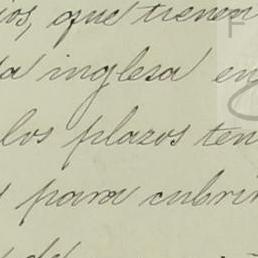 ios, que tienen
a inglesa en
los plazos ten
para cubrir